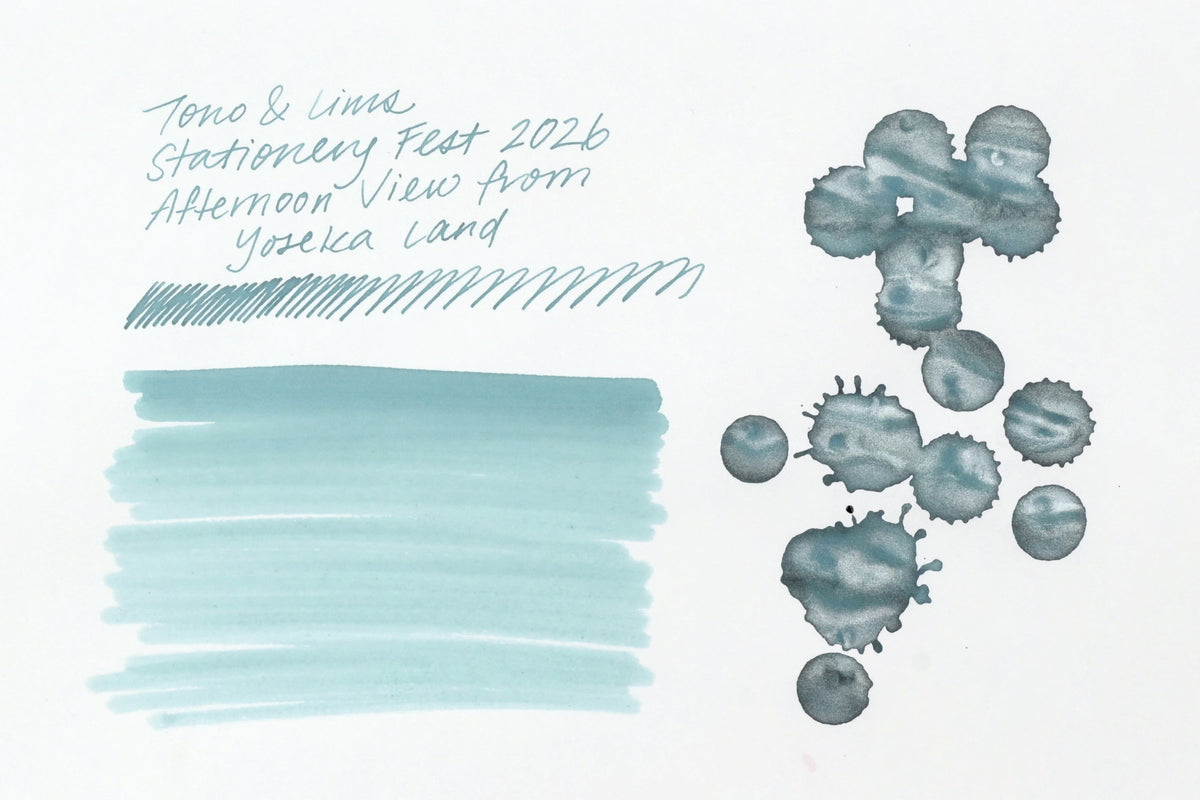 Tono & Lims
Stationery Fest 2026
Afternoon View from
Yoseka Land